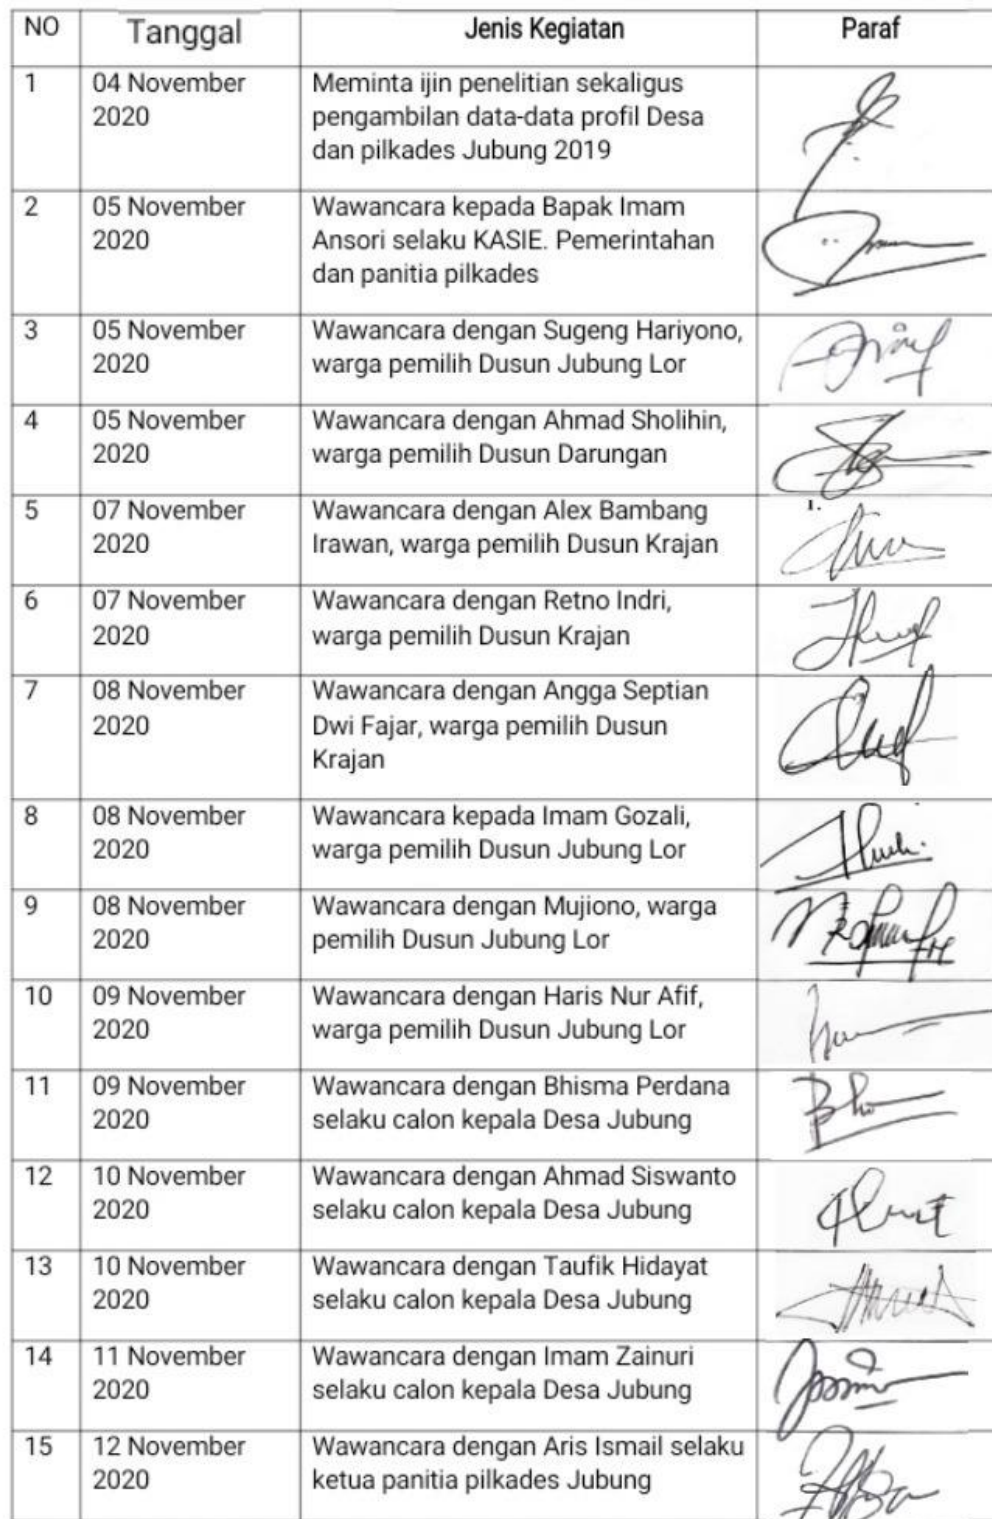 NO Tanggal Jenis Kegiatan Paraf
1 04 November Meminta ijin penelitian sekaligus
2020 pengambilan data-data profil Desa
dan pilkades Jubung 2019
2 05 November Wawancara kepada Bapak Imam
2020 Ansori selaku KASIE. Pemerintahan
dan panitia pilkades
3 05 November Wawancara dengan Sugeng Hariyono,
2020 warga pemilih Dusun Jubung Lor
4 05 November Wawancara dengan Ahmad Sholihin,
2020 warga pemilih Dusun Darungan
5 07 November Wawancara dengan Alex Bambang 1.
2020 Irawan, warga pemilih Dusun Krajan
6 07 November Wawancara dengan Retno Indri,
2020 warga pemilih Dusun Krajan
7 08 November Wawancara dengan Angga Septian
2020 Dwi Fajar, warga pemilih Dusun
Krajan
8 08 November Wawancara kepada Imam Gozali,
2020 warga pemilih Dusun Jubung Lor
9 08 November Wawancara dengan Mujiono, warga
2020 pemilih Dusun Jubung Lor
10 09 November Wawancara dengan Haris Nur Afif,
2020 warga pemilih Dusun Jubung Lor
11 09 November Wawancara dengan Bhisma Perdana
2020 selaku calon kepala Desa Jubung
12 10 November Wawancara dengan Ahmad Siswanto
2020 selaku calon kepala Desa Jubung
13 10 November Wawancara dengan Taufik Hidayat
2020 selaku calon kepala Desa Jubung
14 11 November Wawancara dengan Imam Zainuri
2020 selaku calon kepala Desa Jubung
15 12 November Wawancara dengan Aris Ismail selaku
2020 ketua panitia pilkades Jubung